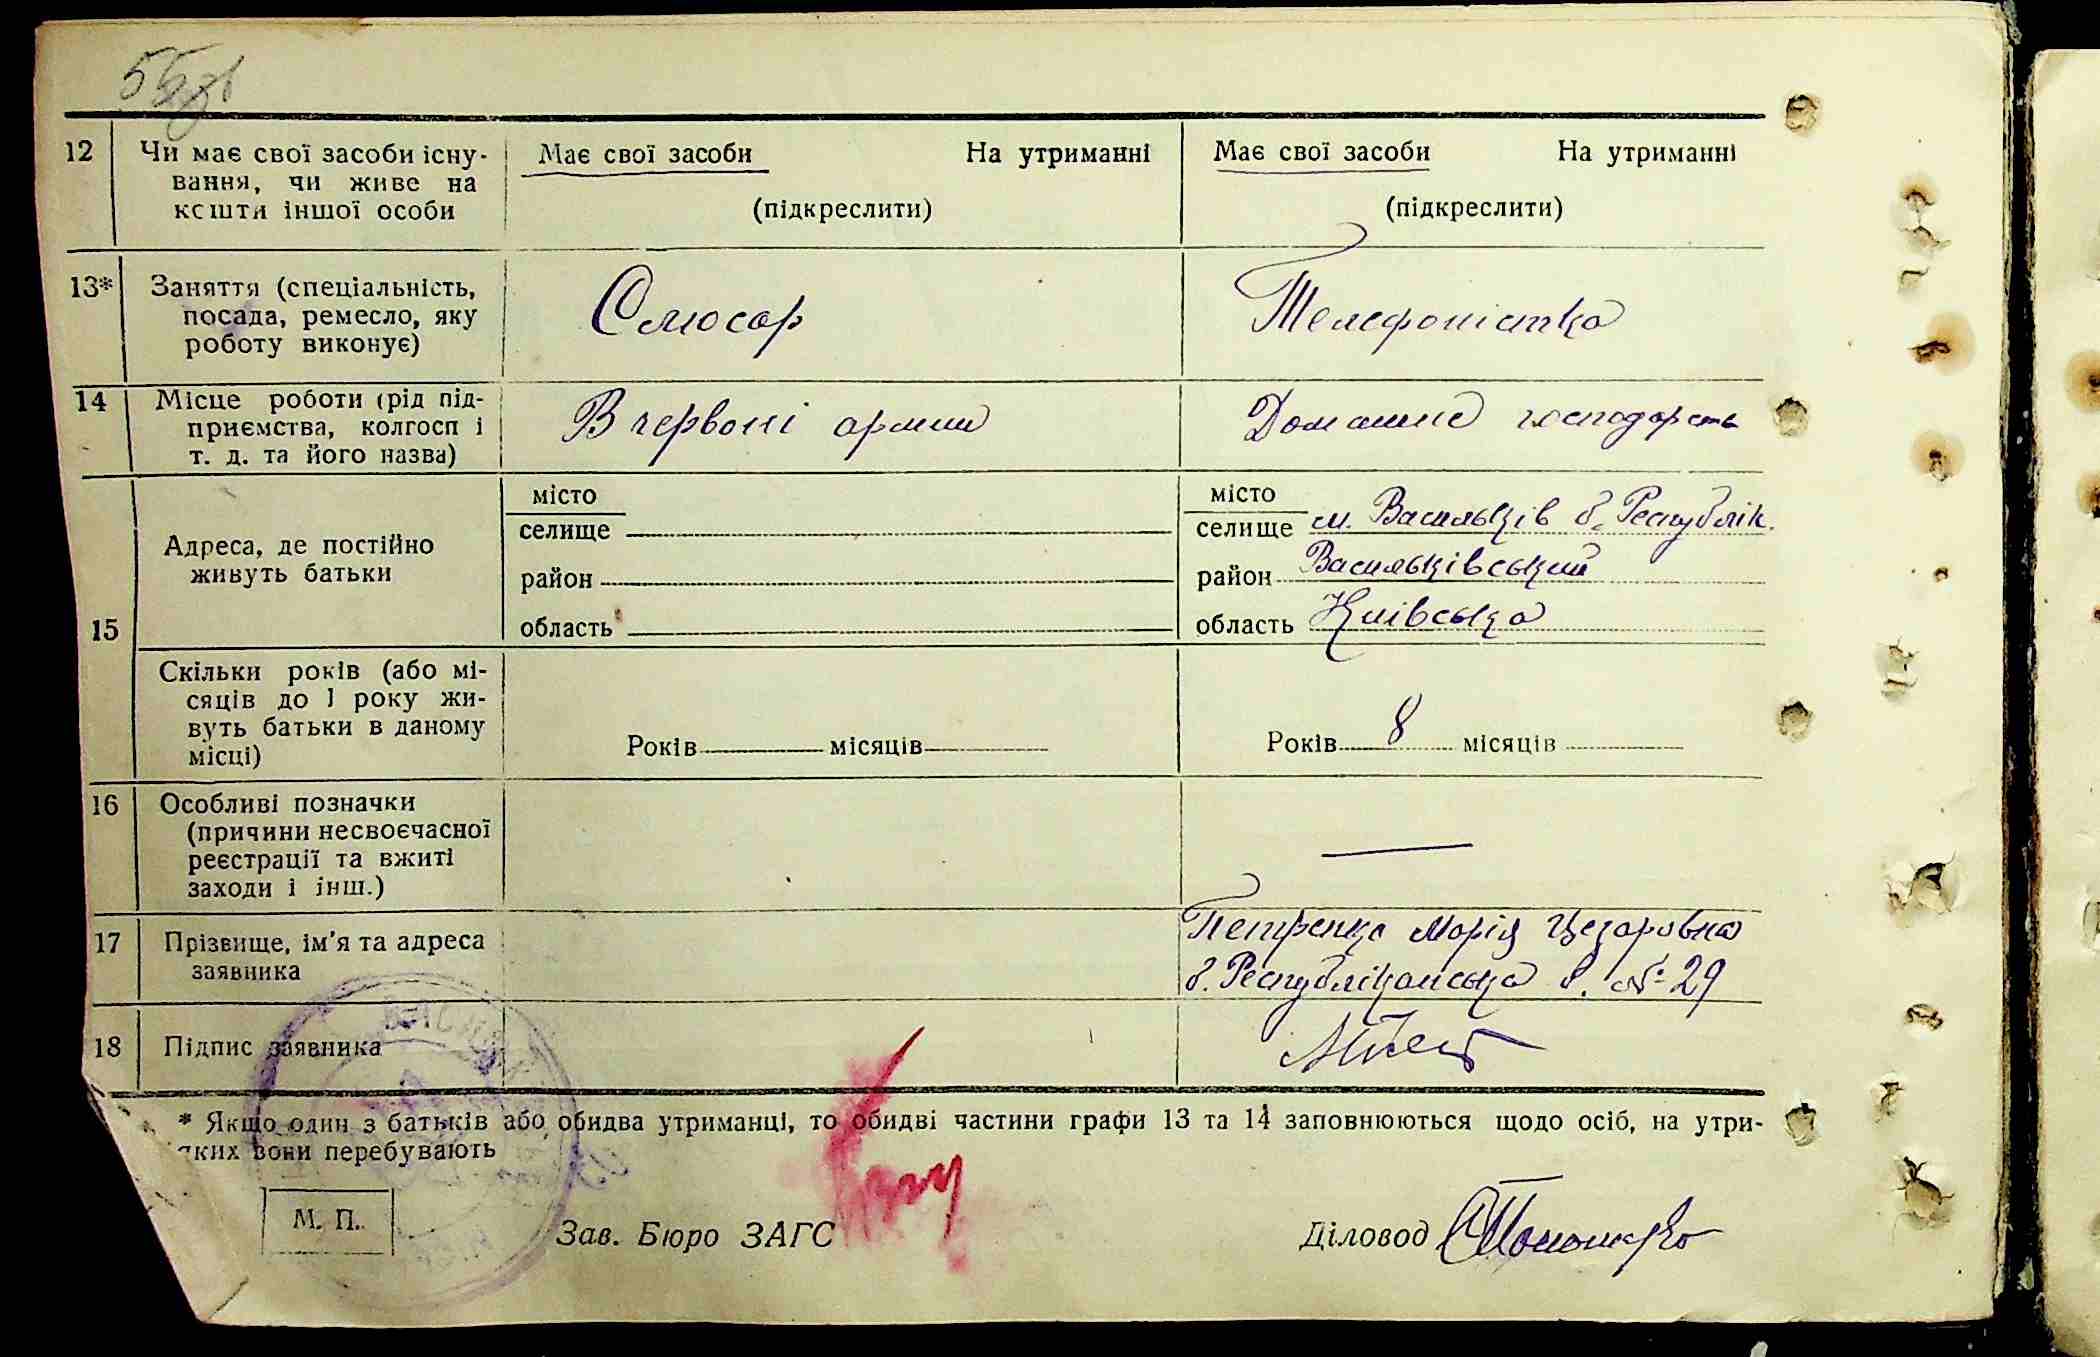 55зв
12 Чи має свої засоби існу- Має свої засоби На утриманні Має свої засоби На утриманні
вання, чи живе на
кошти іншої особи (підкреслити) (підкреслити)
13* Заняття (спеціальність, Слюсар Телефоністка
посада, ремесло, яку
роботу виконує)
14 Місце роботи (рід під- В червоні армии Домашнє господарсть
приємства, колгосп і
т. д. та його назва)
15 Адреса, де постійно
живуть батьки
місто
селище
район
область
місто
селище м. Васильків б. Республік.
район Васильківський
область Київська
Скільки років (або мі-
сяців до 1 року жи-
вуть батьки в даному
місці)
Років місяців Років 8 місяців
16 Особливі позначки
(причини несвоєчасної
реєстрації та вжиті
заходи і інш.)
17 Прізвище, ім'я та адреса Петренко Марія Цезаровна
заявника б. Республіканська б. № 29
18 Підпис заявника
* Якщо один з батьків або обидва утриманці, то обидві частини графи 13 та 14 заповнюються щодо осіб, на утри-
яких вони перебувають
М. П.
Зав. Бюро ЗАГС Діловод